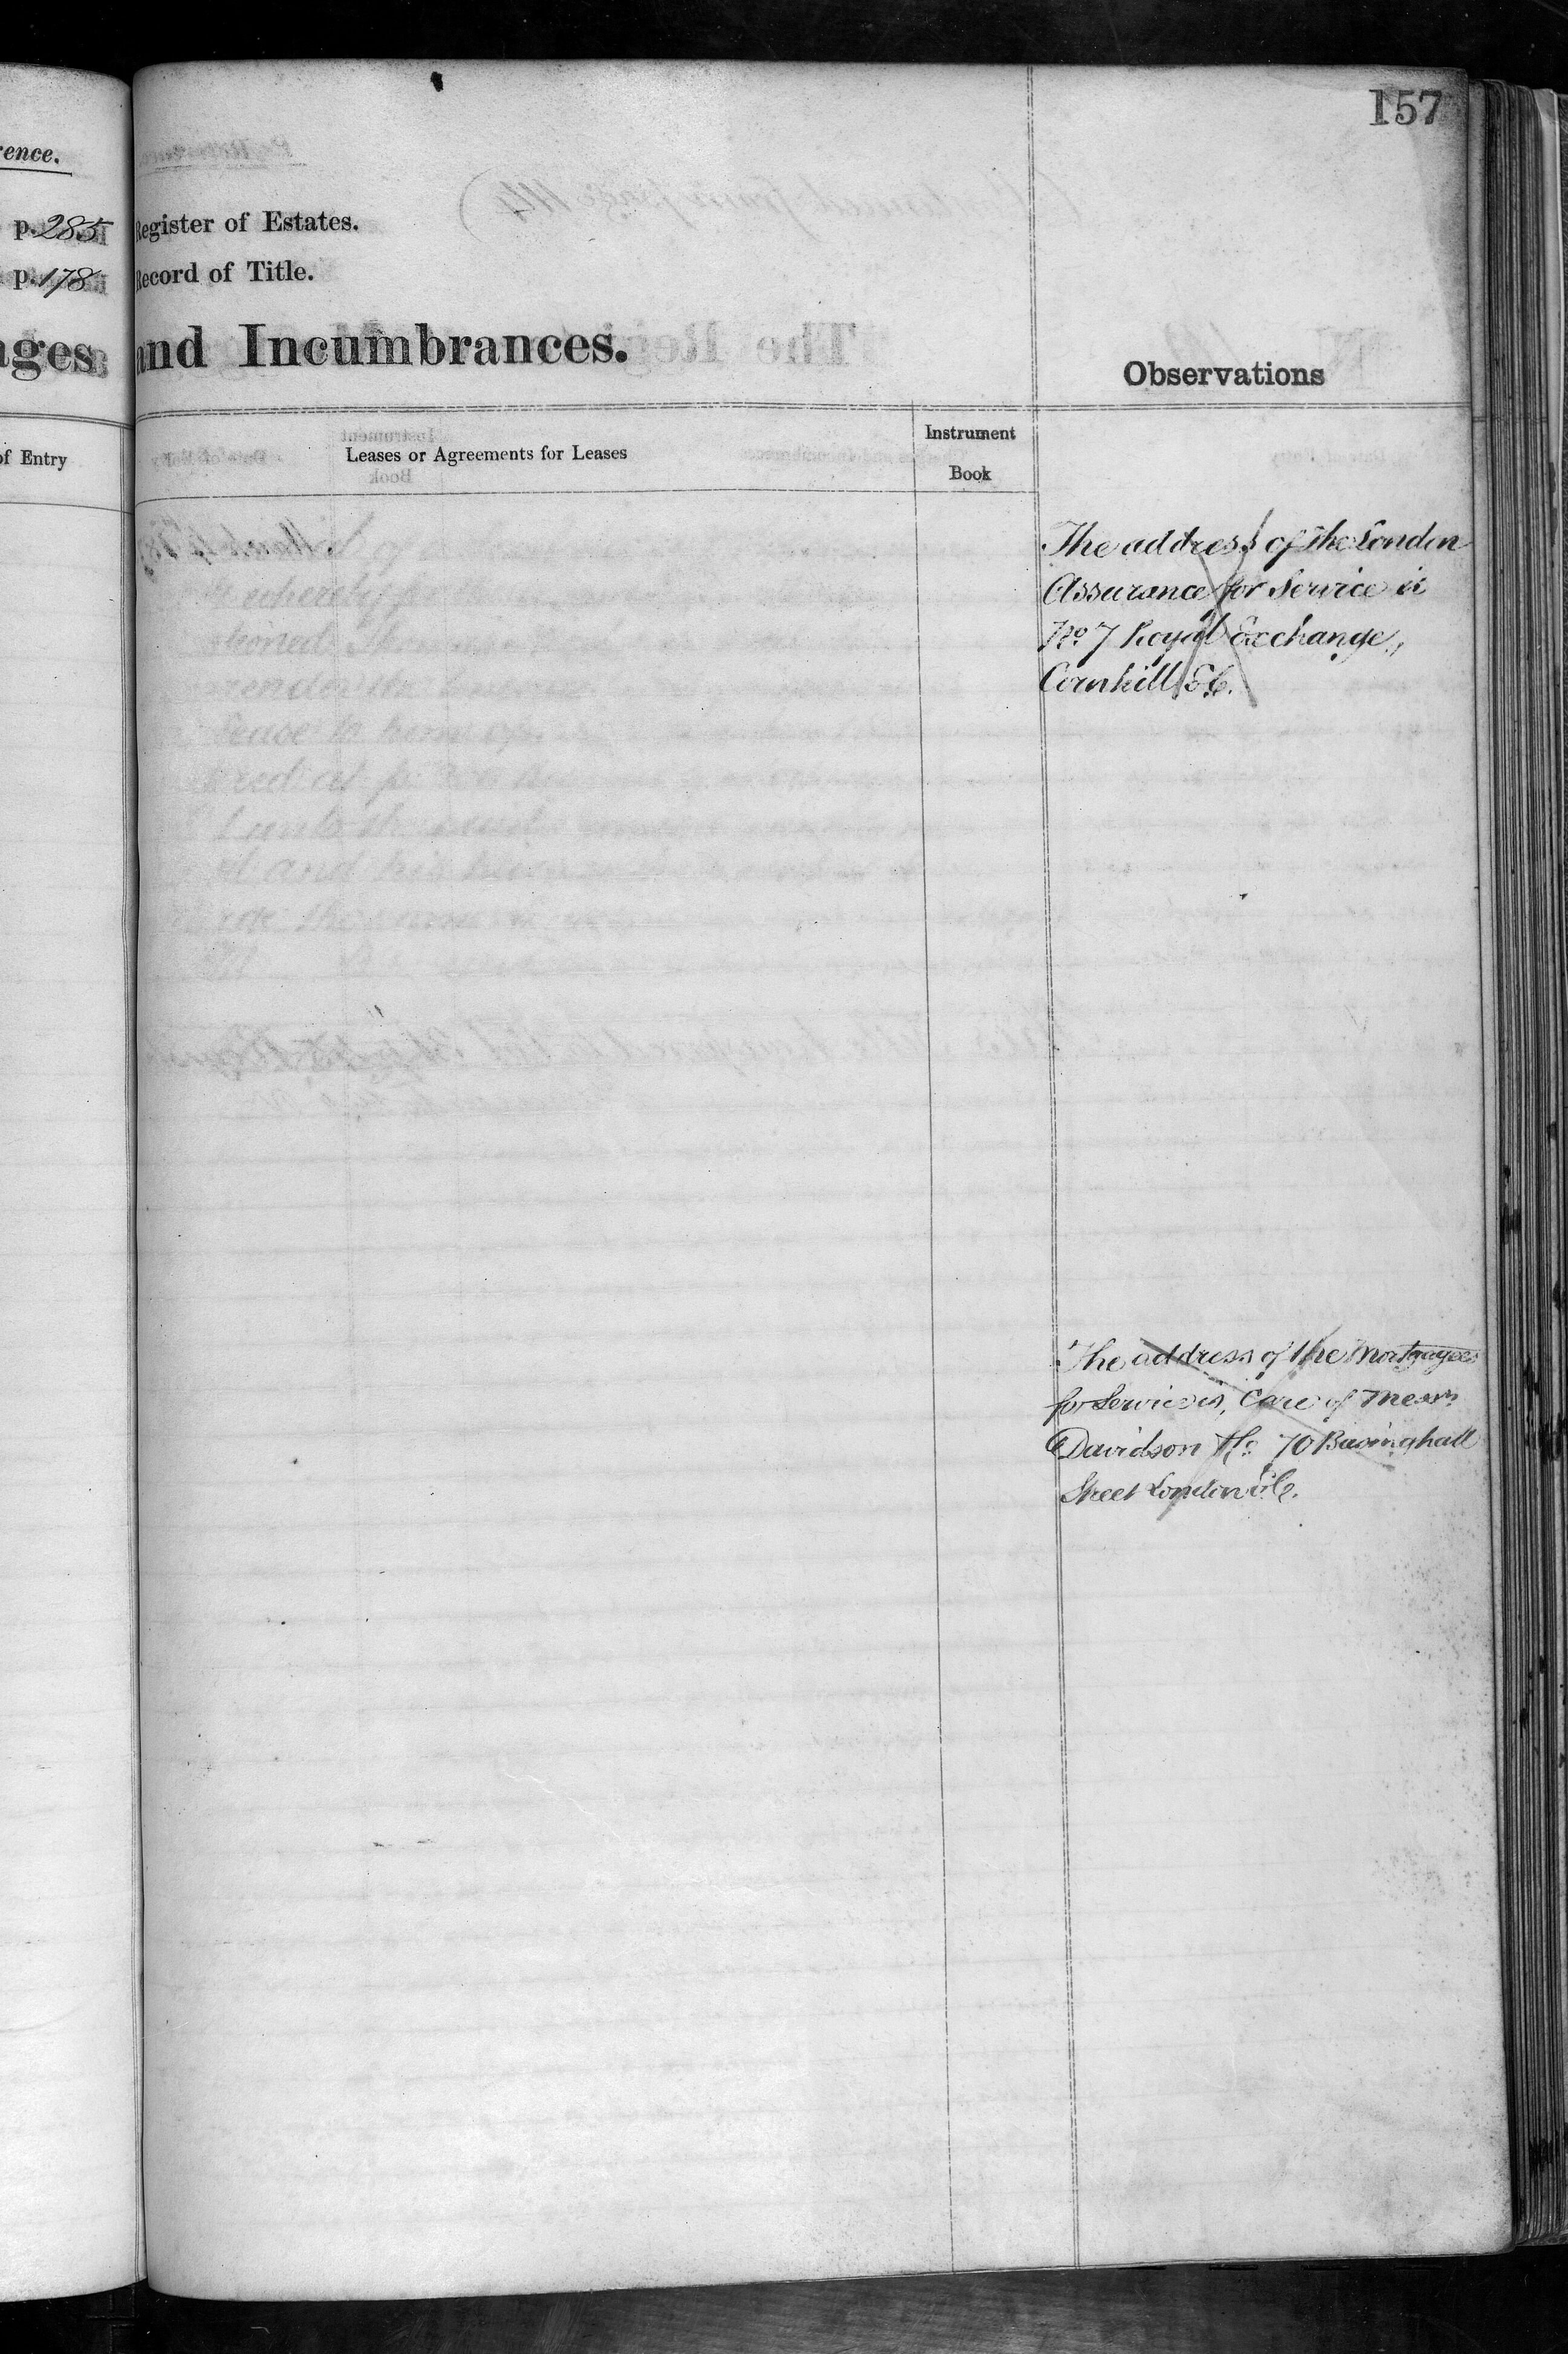 157
rence.
p. 285 Register of Estates.
p. 178 Record of Title.
ages and Incumbrances.
Observations
of Entry
Leases or Agreements for Leases
Instrument
Book
The address of the London
Assurance for Service is
No. 7 Royal Exchange,
Cornhill E.C.
The address of the Mortgagees
for Service is, Care of Messrs
Davidson & Co. 70 Basinghall
Street London E.C.